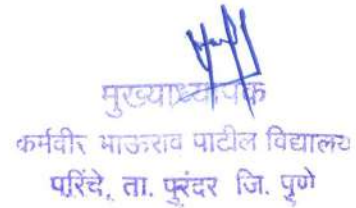 मुख्याध्यापक
कर्मवीर भाऊराव पाटील विद्यालय
परिंचे, ता. पुरंदर जि. पुणे